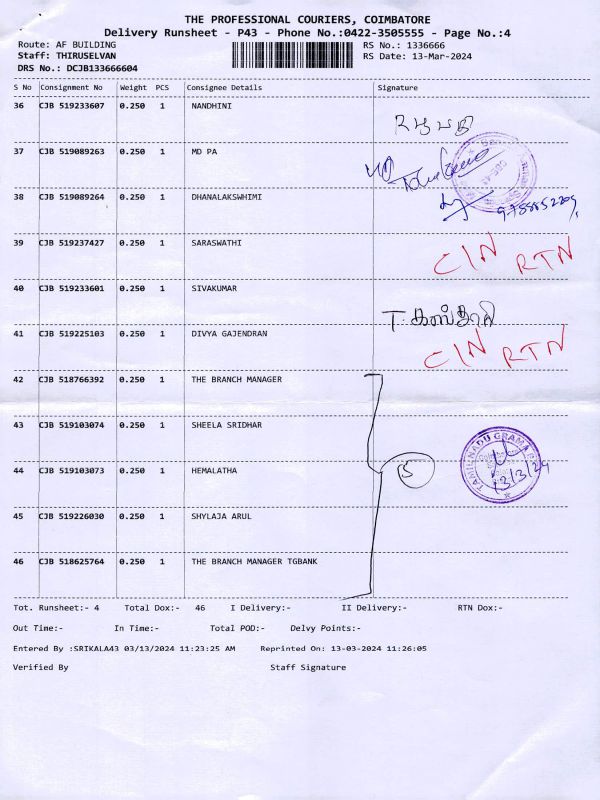 THE PROFESSIONAL COURIERS, COIMBATORE
Delivery Runsheet - P43 - Phone No.:0422-3505555 - Page No.:4
Route: AF BUILDING RS No.: 1336666
Staff: THIRUSELVAN RS Date: 13-Mar-2024
DRS No.: DCJB133666604
S No Consignment No Weight PCS Consignee Details Signature
36 CJB 519233607 0.250 1 NANDHINI
37 CJB 519089263 0.250 1 MD PA
38 CJB 519089264 0.250 1 DHANALAKSWHIMI
39 CJB 519237427 0.250 1 SARASWATHI CIN RTN
40 CJB 519233601 0.250 1 SIVAKUMAR
41 CJB 519225103 0.250 1 DIVYA GAJENDRAN CIN RTN
42 CJB 518766392 0.250 1 THE BRANCH MANAGER
43 CJB 519103074 0.250 1 SHEELA SRIDHAR
44 CJB 519103073 0.250 1 HEMALATHA 5 TAMILNADU GRAMA 13/3/24
45 CJB 519226030 0.250 1 SHYLAJA ARUL
46 CJB 518625764 0.250 1 THE BRANCH MANAGER TGBANK
Tot. Runsheet:- 4 Total Dox:- 46 I Delivery:- II Delivery:- RTN Dox:-
Out Time:- In Time:- Total POD:- Delvy Points:-
Entered By :SRIKALA43 03/13/2024 11:23:25 AM Reprinted On: 13-03-2024 11:26:05
Verified By Staff Signature